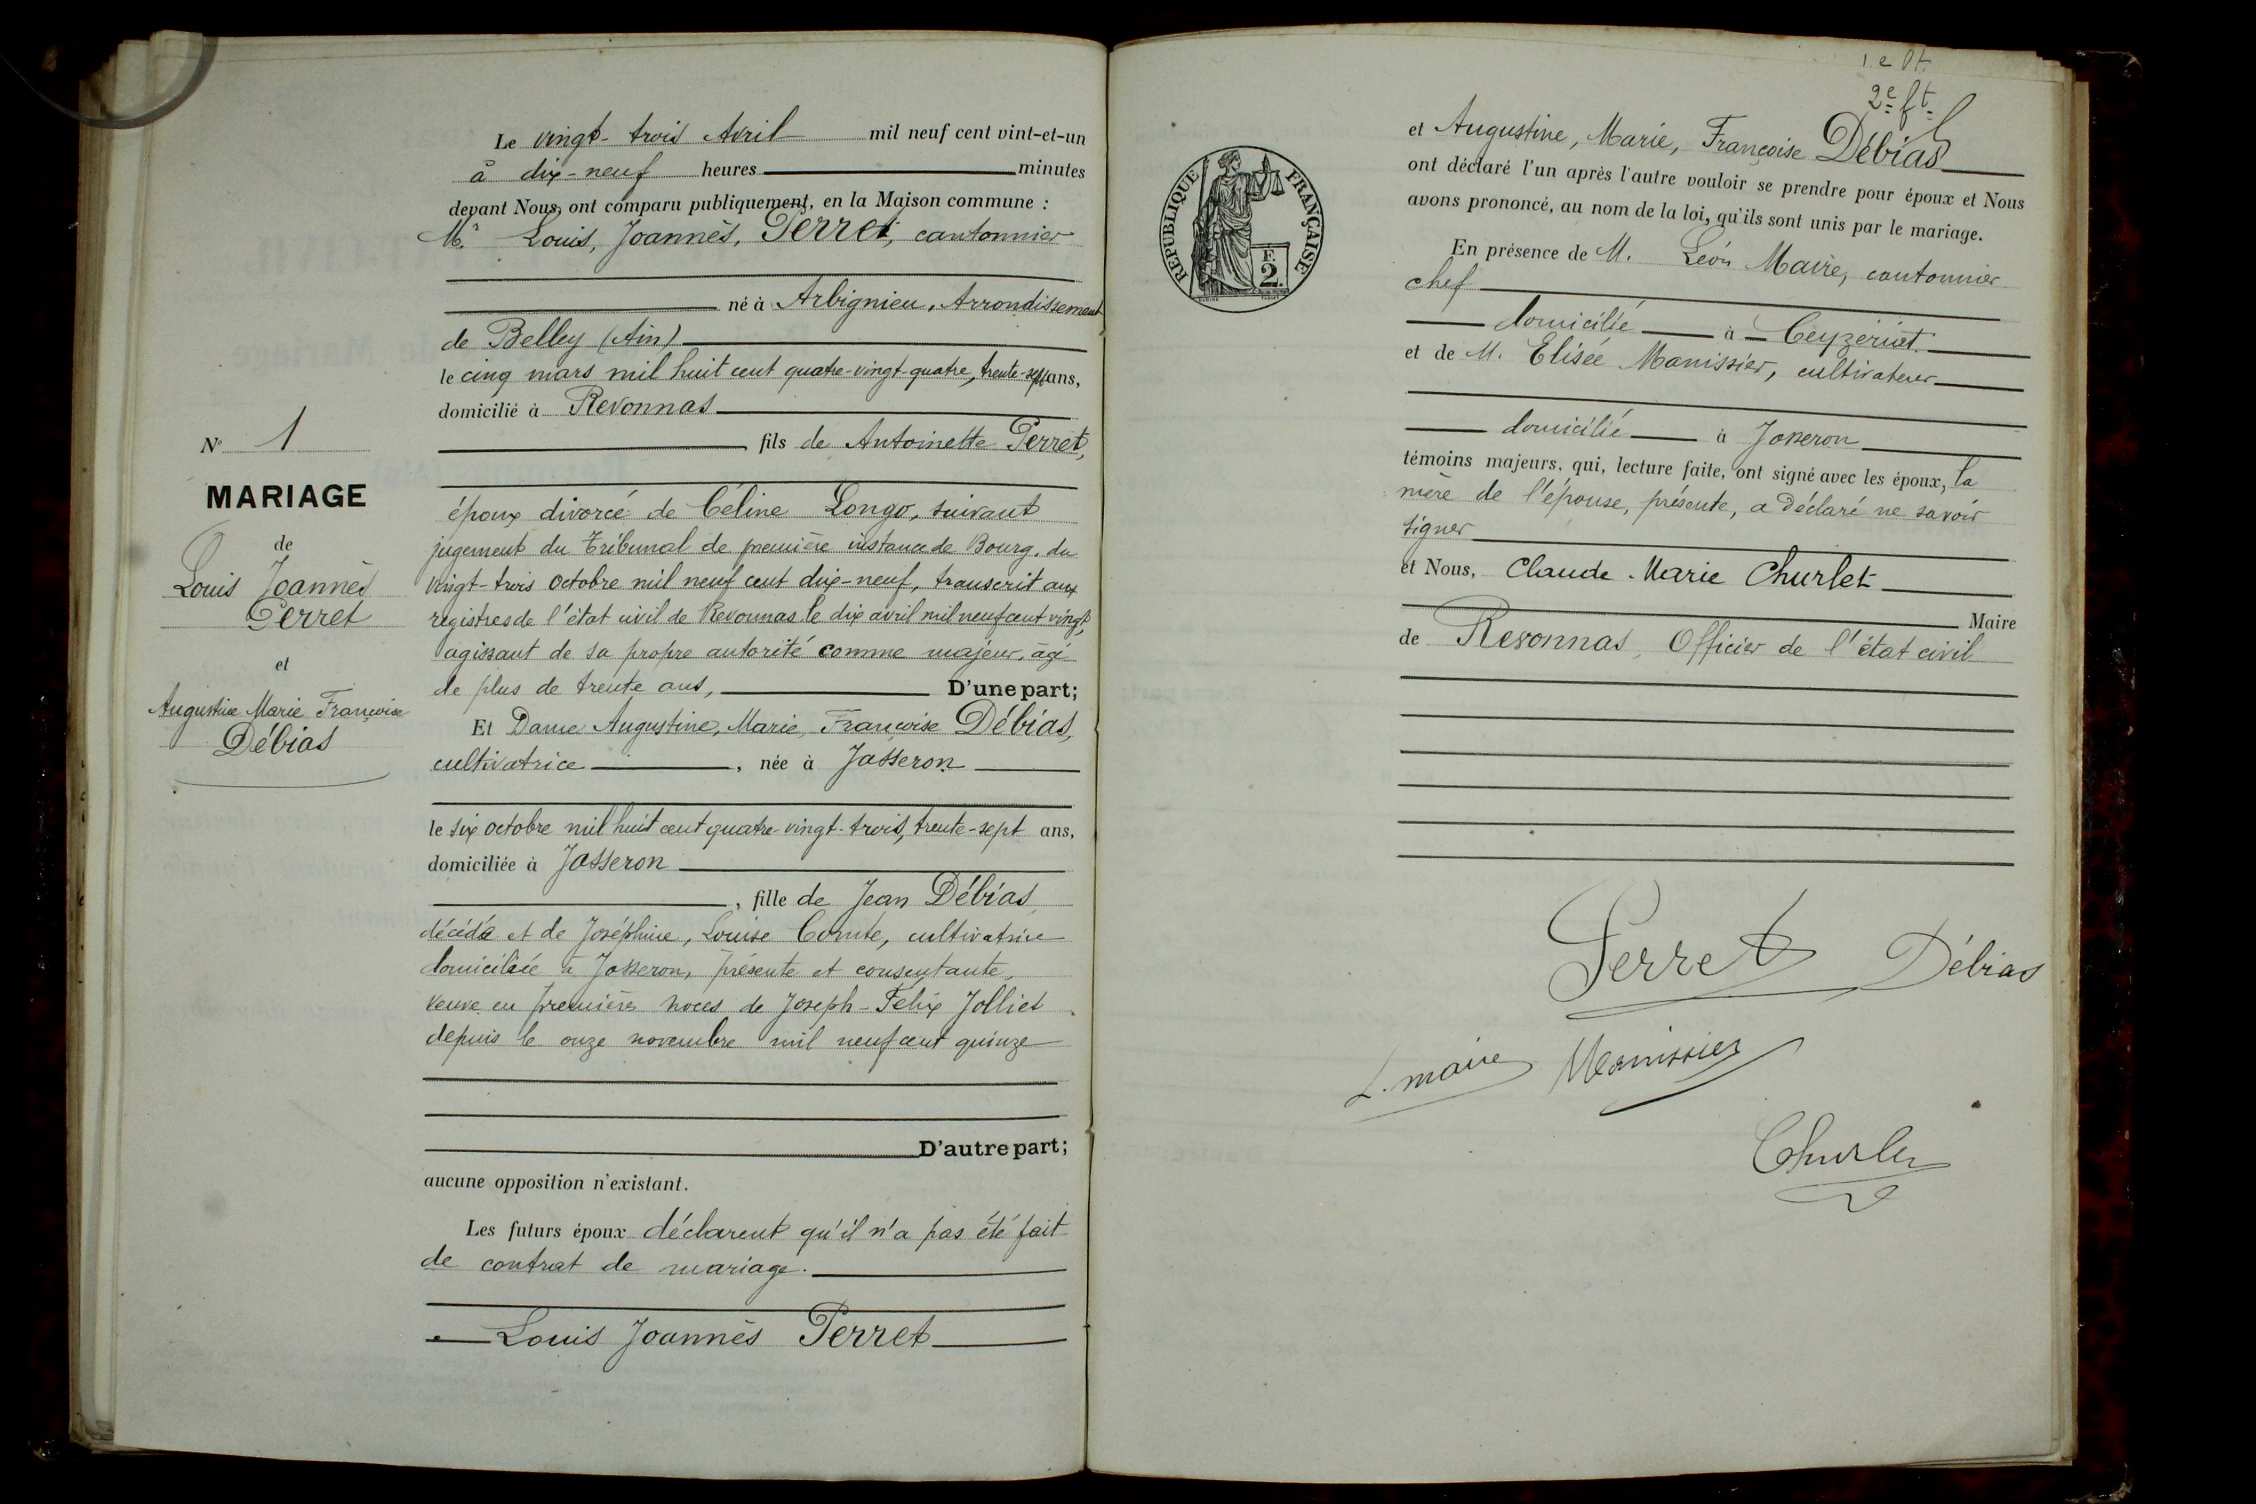 N° 1
MARIAGE
de
Louis Joannès
Perret
et
Augustine Marie Françoise
Débias
Le vingt-trois Avril mil neuf cent vint-et-un
à dix-neuf heures minutes
devant Nous, ont comparu publiquement, en la Maison commune :
Mr Louis, Joannès, Perret, cantonnier
né à Arbignieu, Arrondissement
de Belley (Ain)
le cinq mars mil huit cent quatre-vingt-quatre, trente-sept ans,
domicilié à Revonnas
fils de Antoinette Perret,
époux divorcé de Céline Longo, suivant
jugement du Tribunal de première instance de Bourg, du
vingt-trois octobre mil neuf cent dix-neuf, transcrit aux
registres de l'état civil de Revonnas le dix avril mil neuf cent vingt,
agissant de sa propre autorité comme majeur, âgé
de plus de trente ans, D'une part;
Et Dame Augustine, Marie, Françoise Débias,
cultivatrice, née à Jasseron
le six octobre mil huit cent quatre-vingt-trois, trente-sept ans,
domiciliée à Jasseron
, fille de Jean Débias,
décédé et de Joséphine, Louise Comte, cultivatrice
domiciliée à Jasseron, présente et consentante,
veuve en premières noces de Joseph-Félix Jolliet
depuis le onze novembre mil neuf cent quinze
D'autre part;
aucune opposition n'existant.
Les futurs époux déclarent qu'il n'a pas été fait
de contrat de mariage.
Louis Joannès Perret
1 e ft.
2e ft.
RÉPUBLIQUE FRANÇAISE
F.
2.
et Augustine, Marie, Françoise Débias
ont déclaré l'un après l'autre vouloir se prendre pour époux et Nous
avons prononcé, au nom de la loi, qu'ils sont unis par le mariage.
En présence de M. Léon Maire, cantonnier
chef
domicilié à Ceyzériat
et de M. Elisée Manissier, cultivateur
domicilié à Jasseron
témoins majeurs, qui, lecture faite, ont signé avec les époux, la
mère de l'épouse, présente, a déclaré ne savoir
signer
et Nous, Claude-Marie Churlet
Maire
de Revonnas, Officier de l'état civil
Perret
Débias
L. maire
Manissier
Churlet